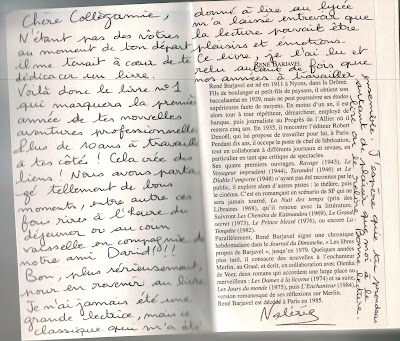 Chère Collègamie,
N'étant pas des nôtres
au moment de ton départ
il me tenait à cœur de te
dédicacer un livre.
Voilà donc le livre n°1
qui marquera la première
année de tes nouvelles
aventures professionnelles
Plus de 10 ans à travailler
à tes côtés ! Cela crée des
liens ! Nous avons partagé
tellement de bons
moments, entre autre ces
fous rires à l'heure du
déjeuner ou au cours
vaisselle en compagnie de
notre ami David !!!
Bon, plus sérieusement,
pour en revenir au livre.
Je n'ai jamais été une
grande lectrice, mais ce
classique qui m'a été
donné à lire au lycée
m'a laissé entrevoir que
la lecture pouvait être
plaisirs et émotions.
Ce livre, je l'ai lu et
relu autant de fois que
nos années à travailler
ensemble. J'espère que tu prendras
autant de plaisir que moi à
Bonne lecture,
RENÉ BARJAVEL
René Barjavel est né en 1911 à Nyons, dans la Drôme.
Fils de boulanger et petit-fils de paysans, il obtient son
baccalauréat en 1929, mais ne peut poursuivre ses études
supérieures faute de moyens. En moins d'un an, il est
alors tour à tour répétiteur, démarcheur, employé de
banque, puis journaliste au Progrès de l'Allier où il
restera cinq ans. En 1935, il rencontre l'éditeur Robert
Denoël, qui lui propose de travailler pour lui, à Paris.
Pendant dix ans, il occupe le poste de chef de fabrication,
tout en collaborant à différents journaux et revues, en
particulier en tant que critique de spectacles.
Ses quatre premiers ouvrages, Ravage (1943), Le
Voyageur imprudent (1944), Tarendol (1946) et Le
Diable l'emporte (1948) n'ayant pas été reconnus par le
public, il explore alors d'autres pistes : le théâtre, puis
le cinéma. C'est en romançant un scénario de SF qui ne
sera jamais tourné, La Nuit des temps (prix des
Libraires 1968), qu'il renoue avec la littérature.
Suivront Les Chemins de Katmandou (1969), Le Grand
secret (1973), Le Prince blessé (1976), ou encore La
Tempête (1982).
Parallèlement, René Barjavel signe une chronique
hebdomadaire dans le Journal du Dimanche, « Les libres
propos de Barjavel », jusqu'en 1979. Quelques années
plus tard, il consacre des nouvelles à l'enchanteur
Merlin, au Graal, et écrit, en collaboration avec Olenka
de Veer, deux romans qui accordent une large place au
merveilleux : Les Dames à la licorne (1974) et sa suite,
Les Jours du monde (1977), puis L'Enchanteur (1984),
version romanesque de ses réflexions sur Merlin.
René Barjavel est décédé à Paris en 1985.
Valérie